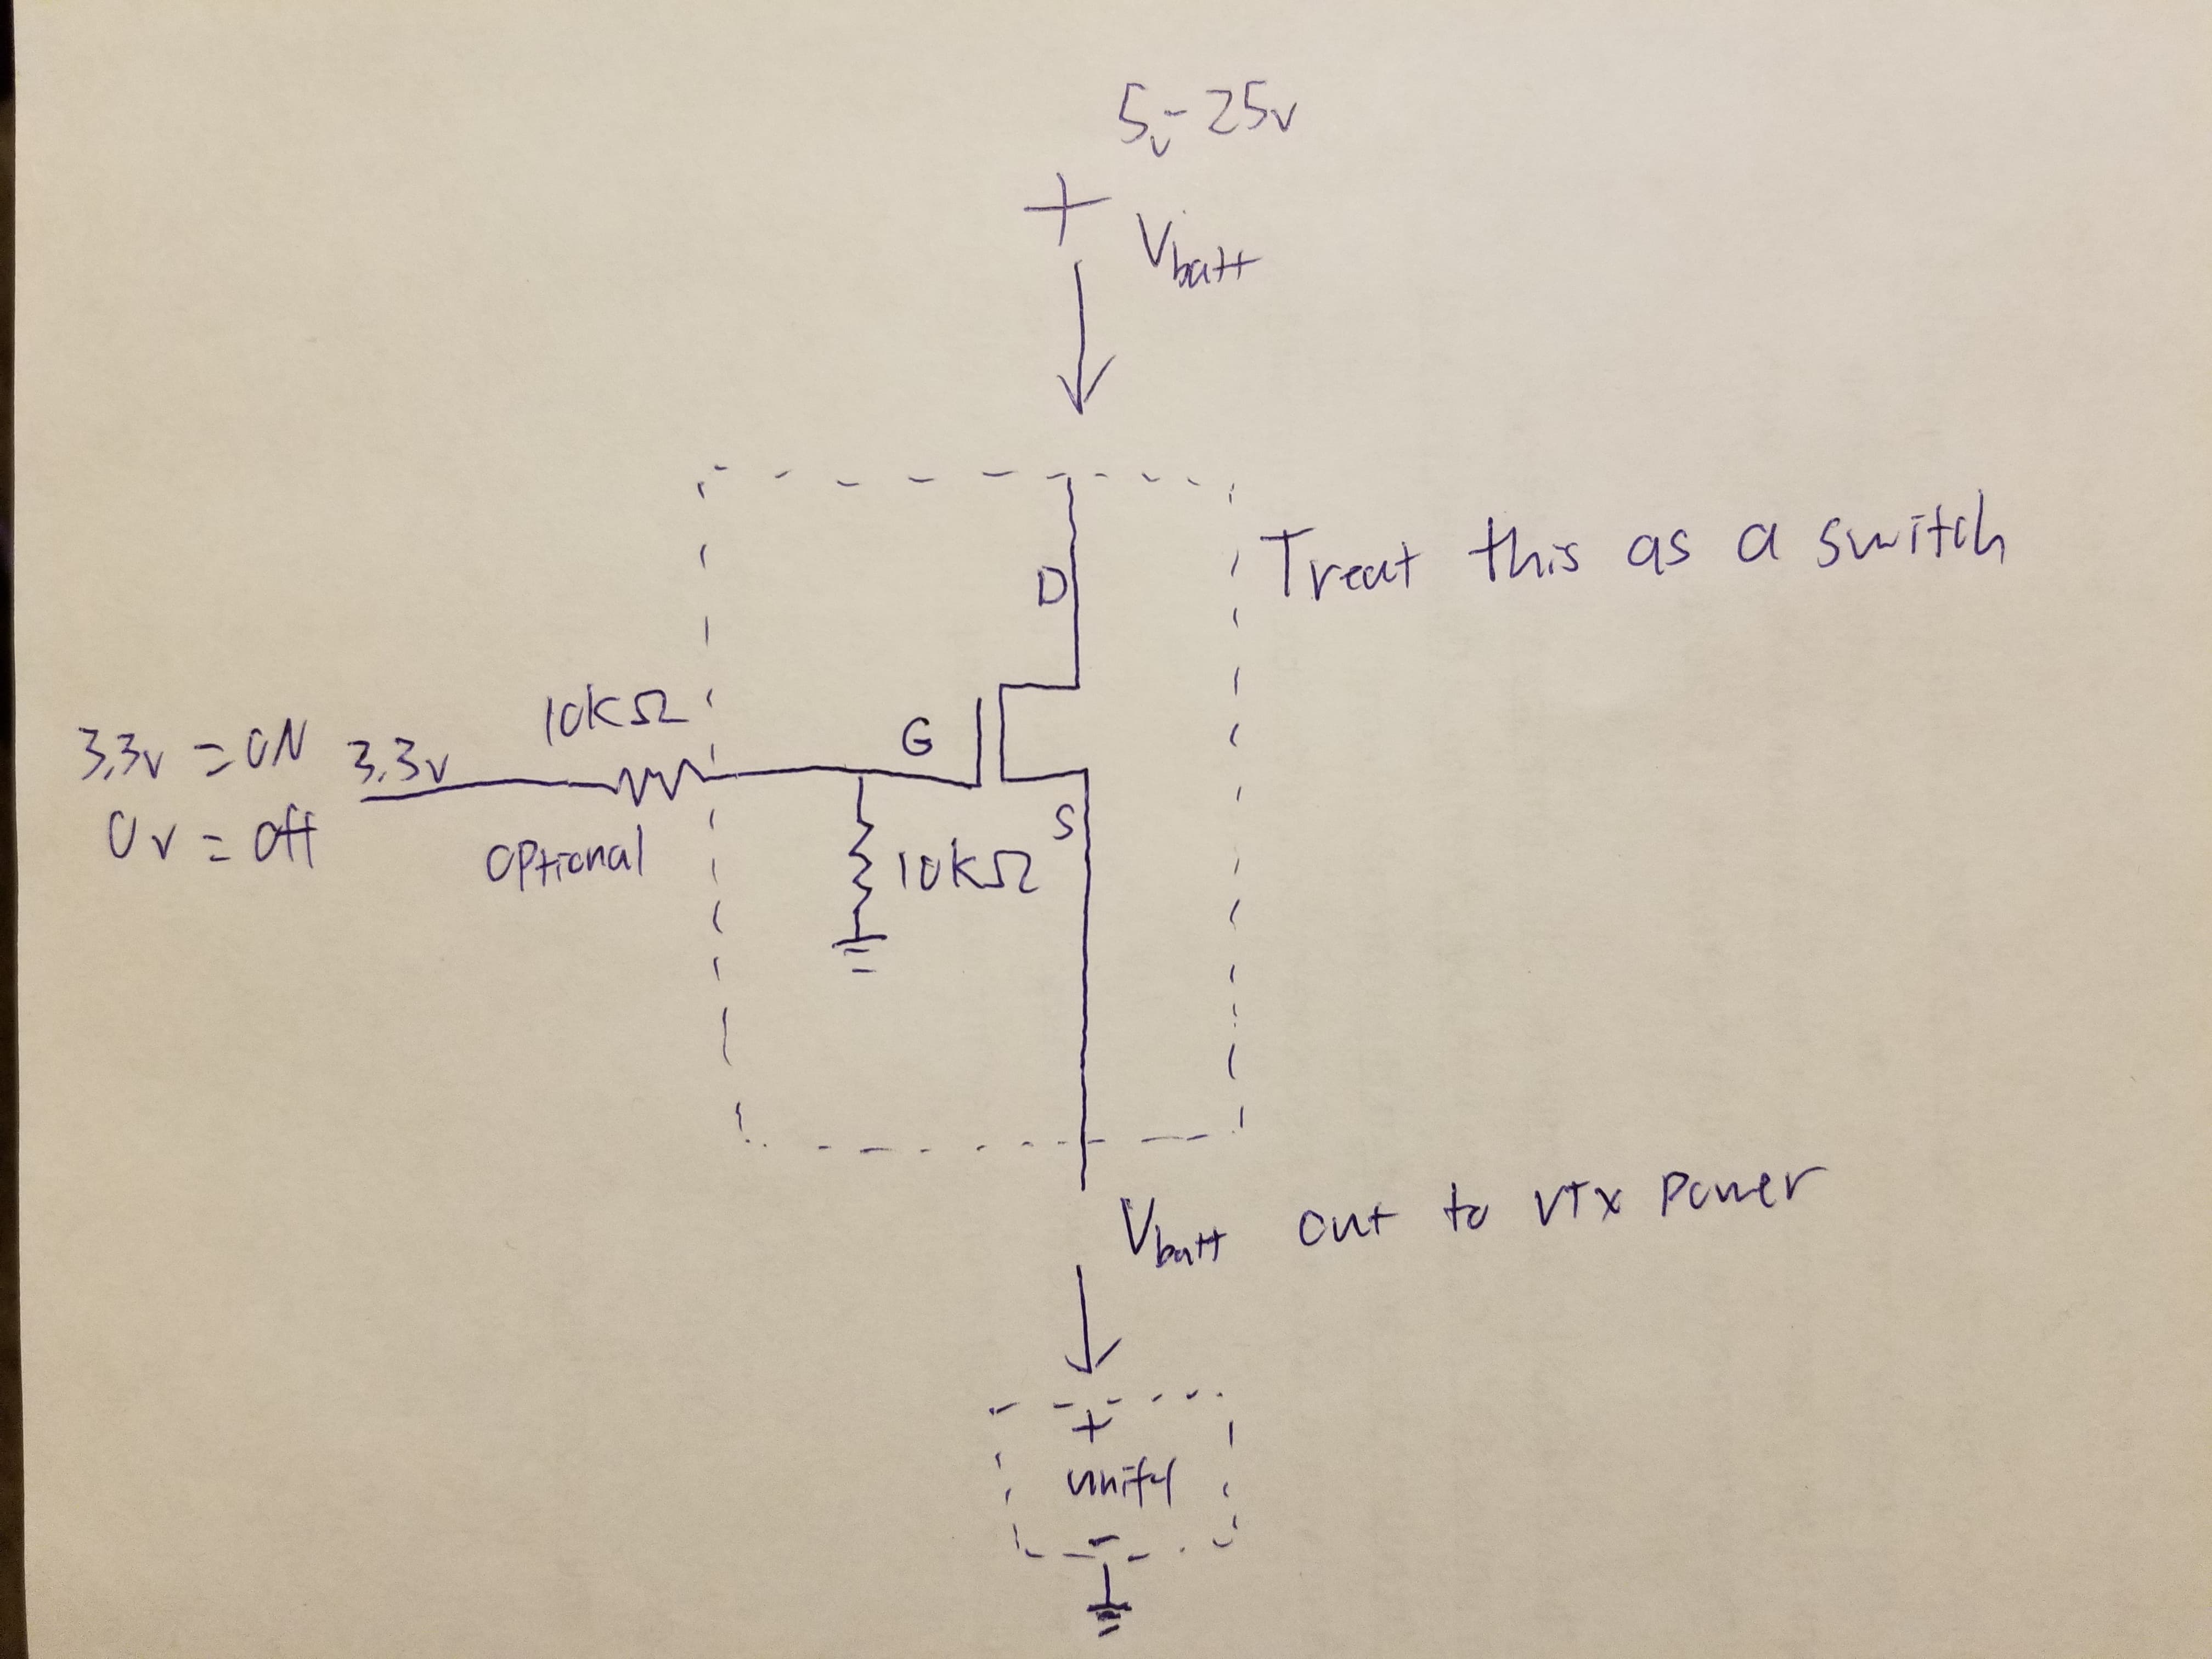 5v-25v
+
Vbatt
Treat this as a switch
D
10KΩ
3.3v = ON
3.3v
G
0v = Off
Optional
S
10KΩ
Vbatt out to VTx Power
+
unify
-